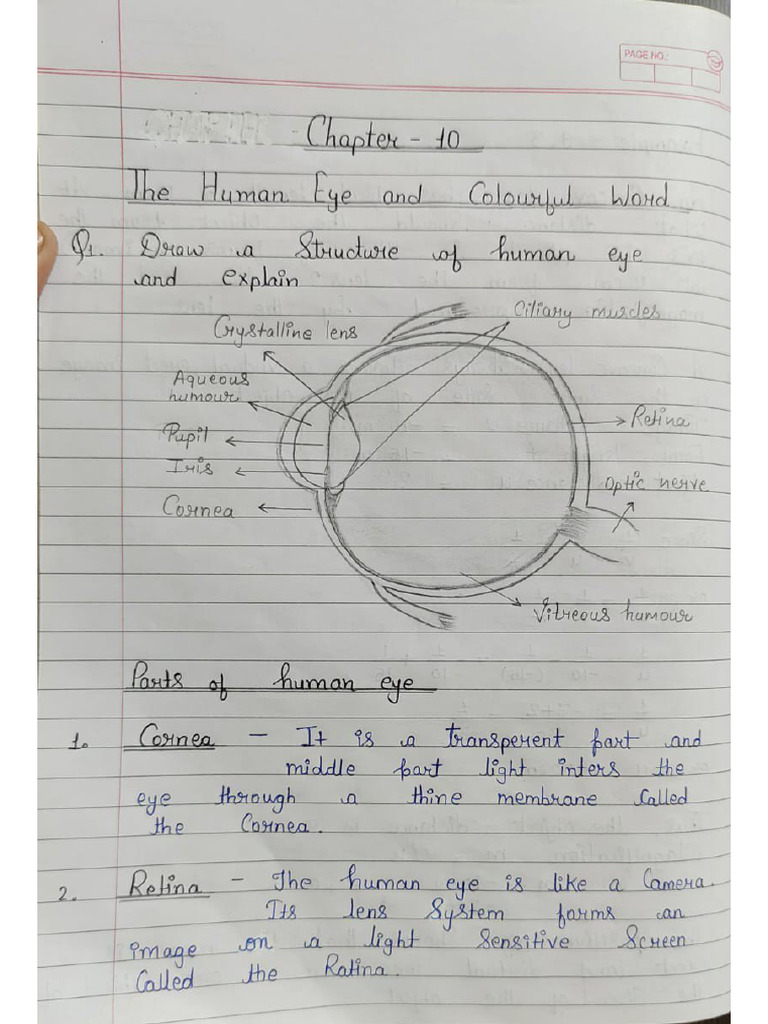 PAGE NO.:
Chapter - 10
The Human Eye and Colourful Word
Q1. Draw a Structure of human eye
and explain
Ciliary muscles
Crystalline lens
Aqueous
humour
Pupil
Iris
Cornea
Retina
Optic nerve
Vitreous humour
Parts of human eye
1. Cornea - It is a transperent part and
middle part light inters the
eye through a thine membrane Called
the Cornea.
2. Retina - The human eye is like a Camera.
Its lens System forms an
image on a light Sensitive Screen
Called the Ratina.